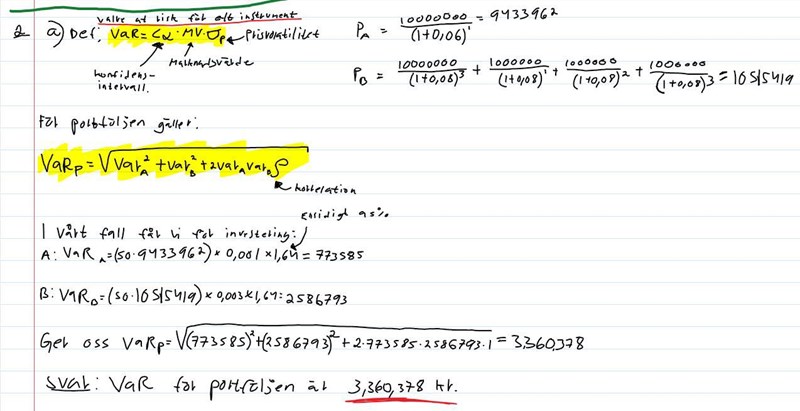 Value at risk för ett instrument
2 a) Def. VaR = Cα · MV · σp ← Prisvolatilitet
konfidens-
intervall.
Marknadsvärde
P_A = 10000000/(1+0,06)^1 = 9433962
P_B = 10000000/(1+0,08)^3 + 1000000/(1+0,08)^1 + 1000000/(1+0,08)^2 + 1000000/(1+0,08)^3 = 10515419
För portföljen gäller:
VaR_P = √(VaR_A^2 + VaR_B^2 + 2VaR_A VaR_B ρ)
korrelation
Ensidigt 95%
I vårt fall får vi för investering:
A: VaR_A = (50·9433962) × 0,001 × 1,64 = 773585
B: VaR_B = (50·10515419) × 0,003 × 1,64 = 2586793
Ger oss VaR_P = √((773585)^2 + (2586793)^2 + 2·773585·2586793·1) = 3,360,378
Svar: VaR för portföljen är 3,360,378 kr.